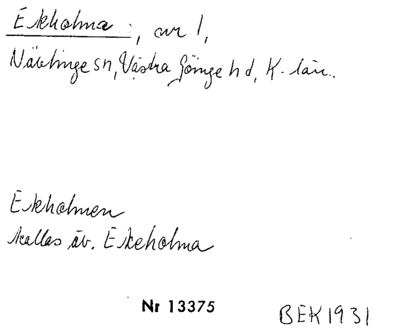 Ekholma :, avr l,
Nävlinge sn, Västra Göinge hd, K. län.
Ekholmen
kallas äv. Ekeholma
Nr 13375
BEK 1931